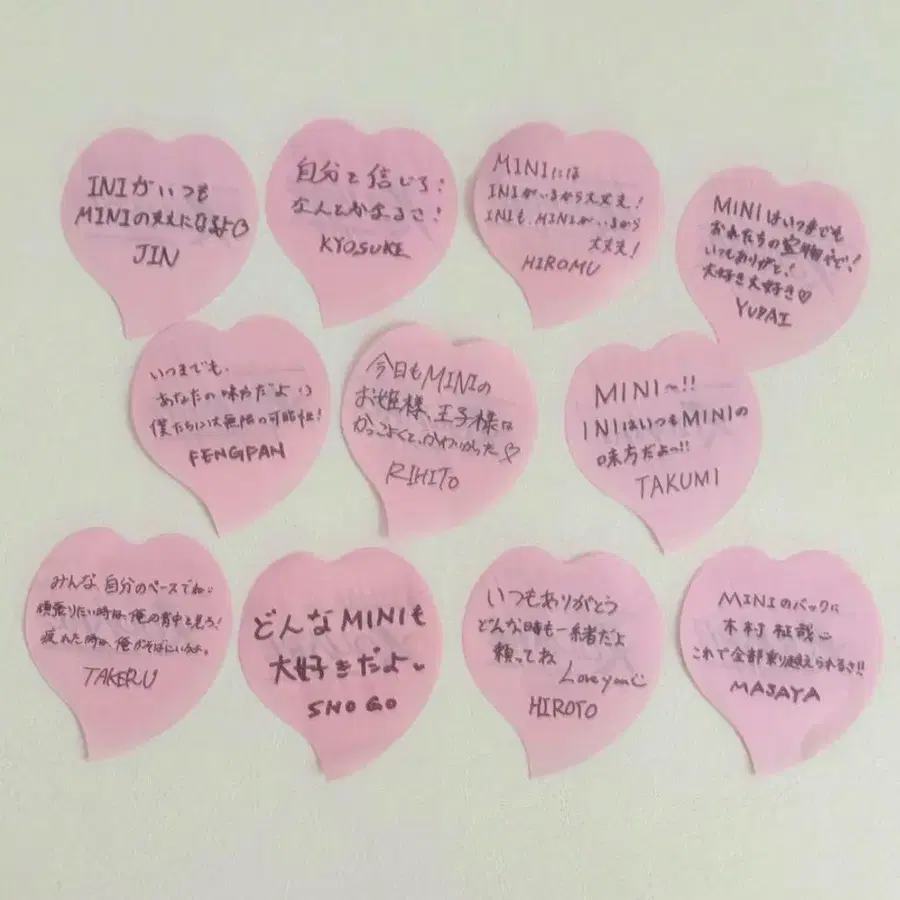 INIがいつも
MINIの支えになるよ♡
JIN
自分を信じろ!
なんとかなるさ!
KYOSUKE
MINIには
INIがいるから大丈夫!
INIも、MINIがいるから
大丈夫!
HIROMU
MINIはいつまでも
おれたちの宝物やで!
いつもありがと!
大好き大好き♡
YUDAI
いつまでも、
あなたの味方だよ
僕たちには無限の可能性!
FENGFAN
今日もMINIの
お姫様、王子様は
かっこよくて、かわいかった♡
RIHITO
MINI〜!!
INIはいつもMINIの
味方だよっ!!
TAKUMI
みんな、自分のペースでね
頑張りたい時は、俺の背中を見ろ!
疲れた時は、俺がそばにいるよ。
TAKERU
どんなMINIも
大好きだよ
SHOGO
いつもありがとう
どんな時も一緒だよ
頼ってね
Love you
HIROTO
MINIのバックに
木村柾哉
これで全部乗り越えられるさ!!
MASAYA